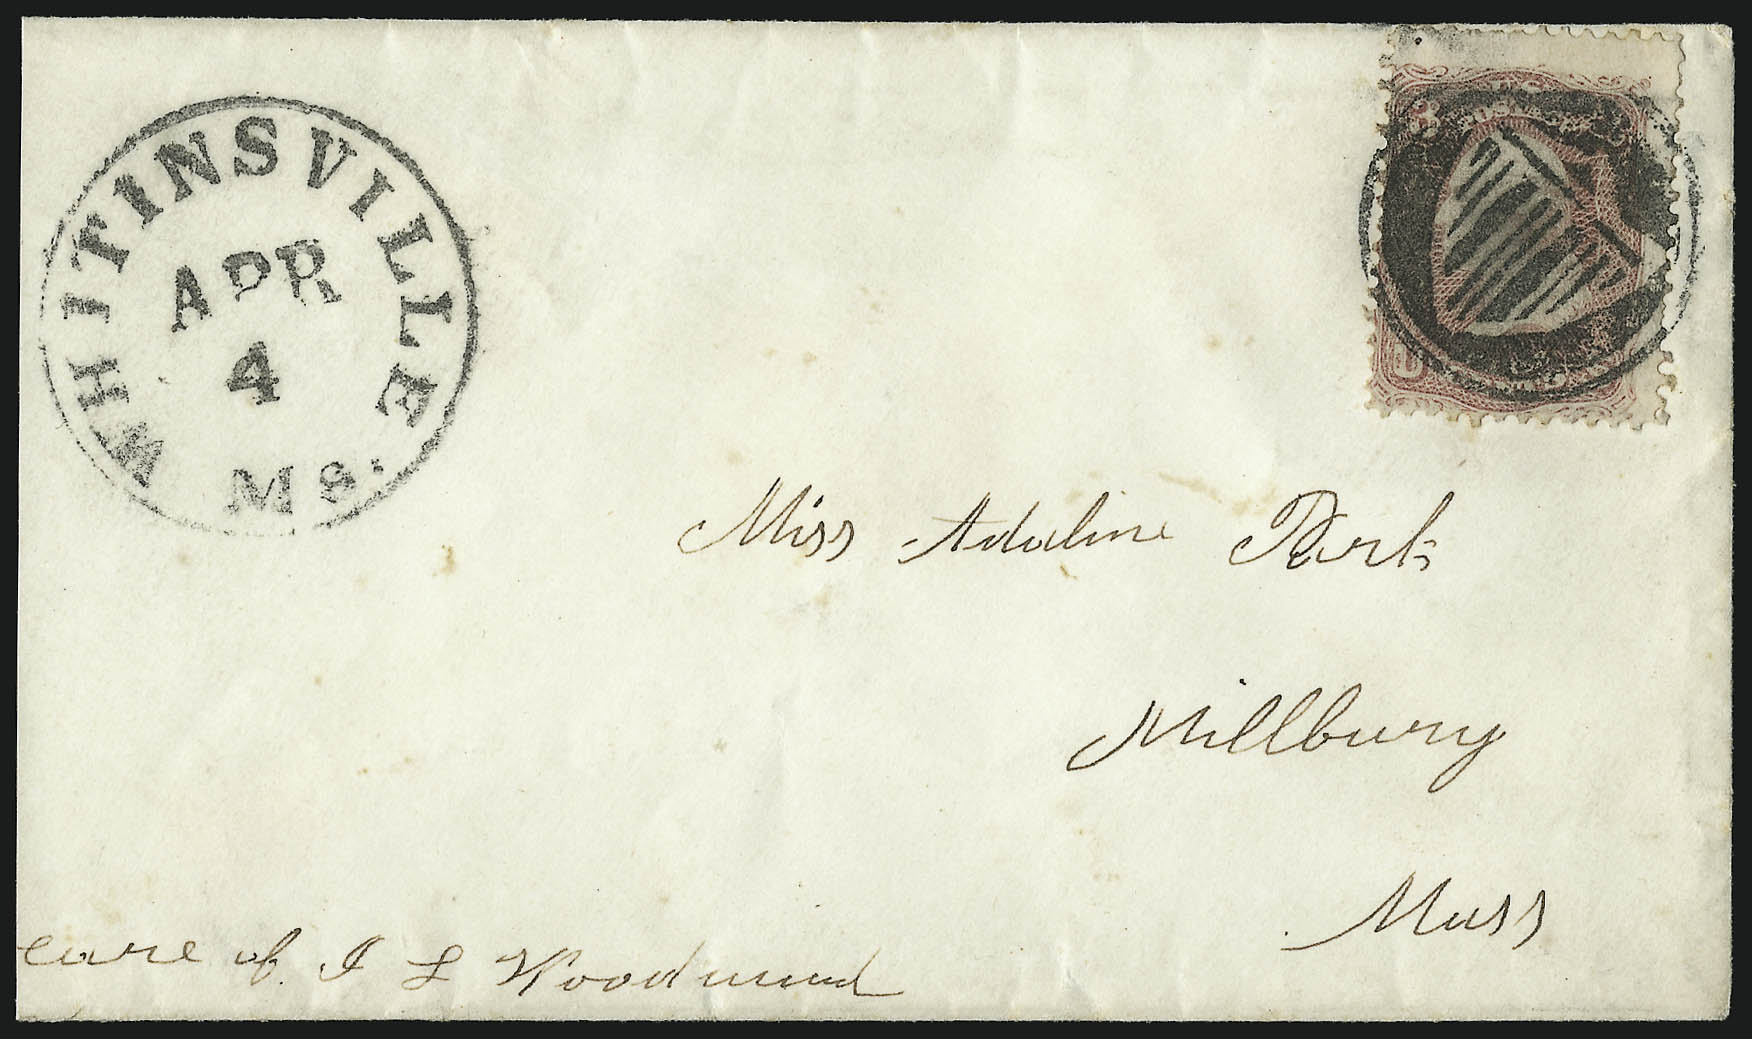 WHITINSVILLE
APR
4
Ms.
3
Miss Adaline Park
Millbury
Mass
care of I L Woodward